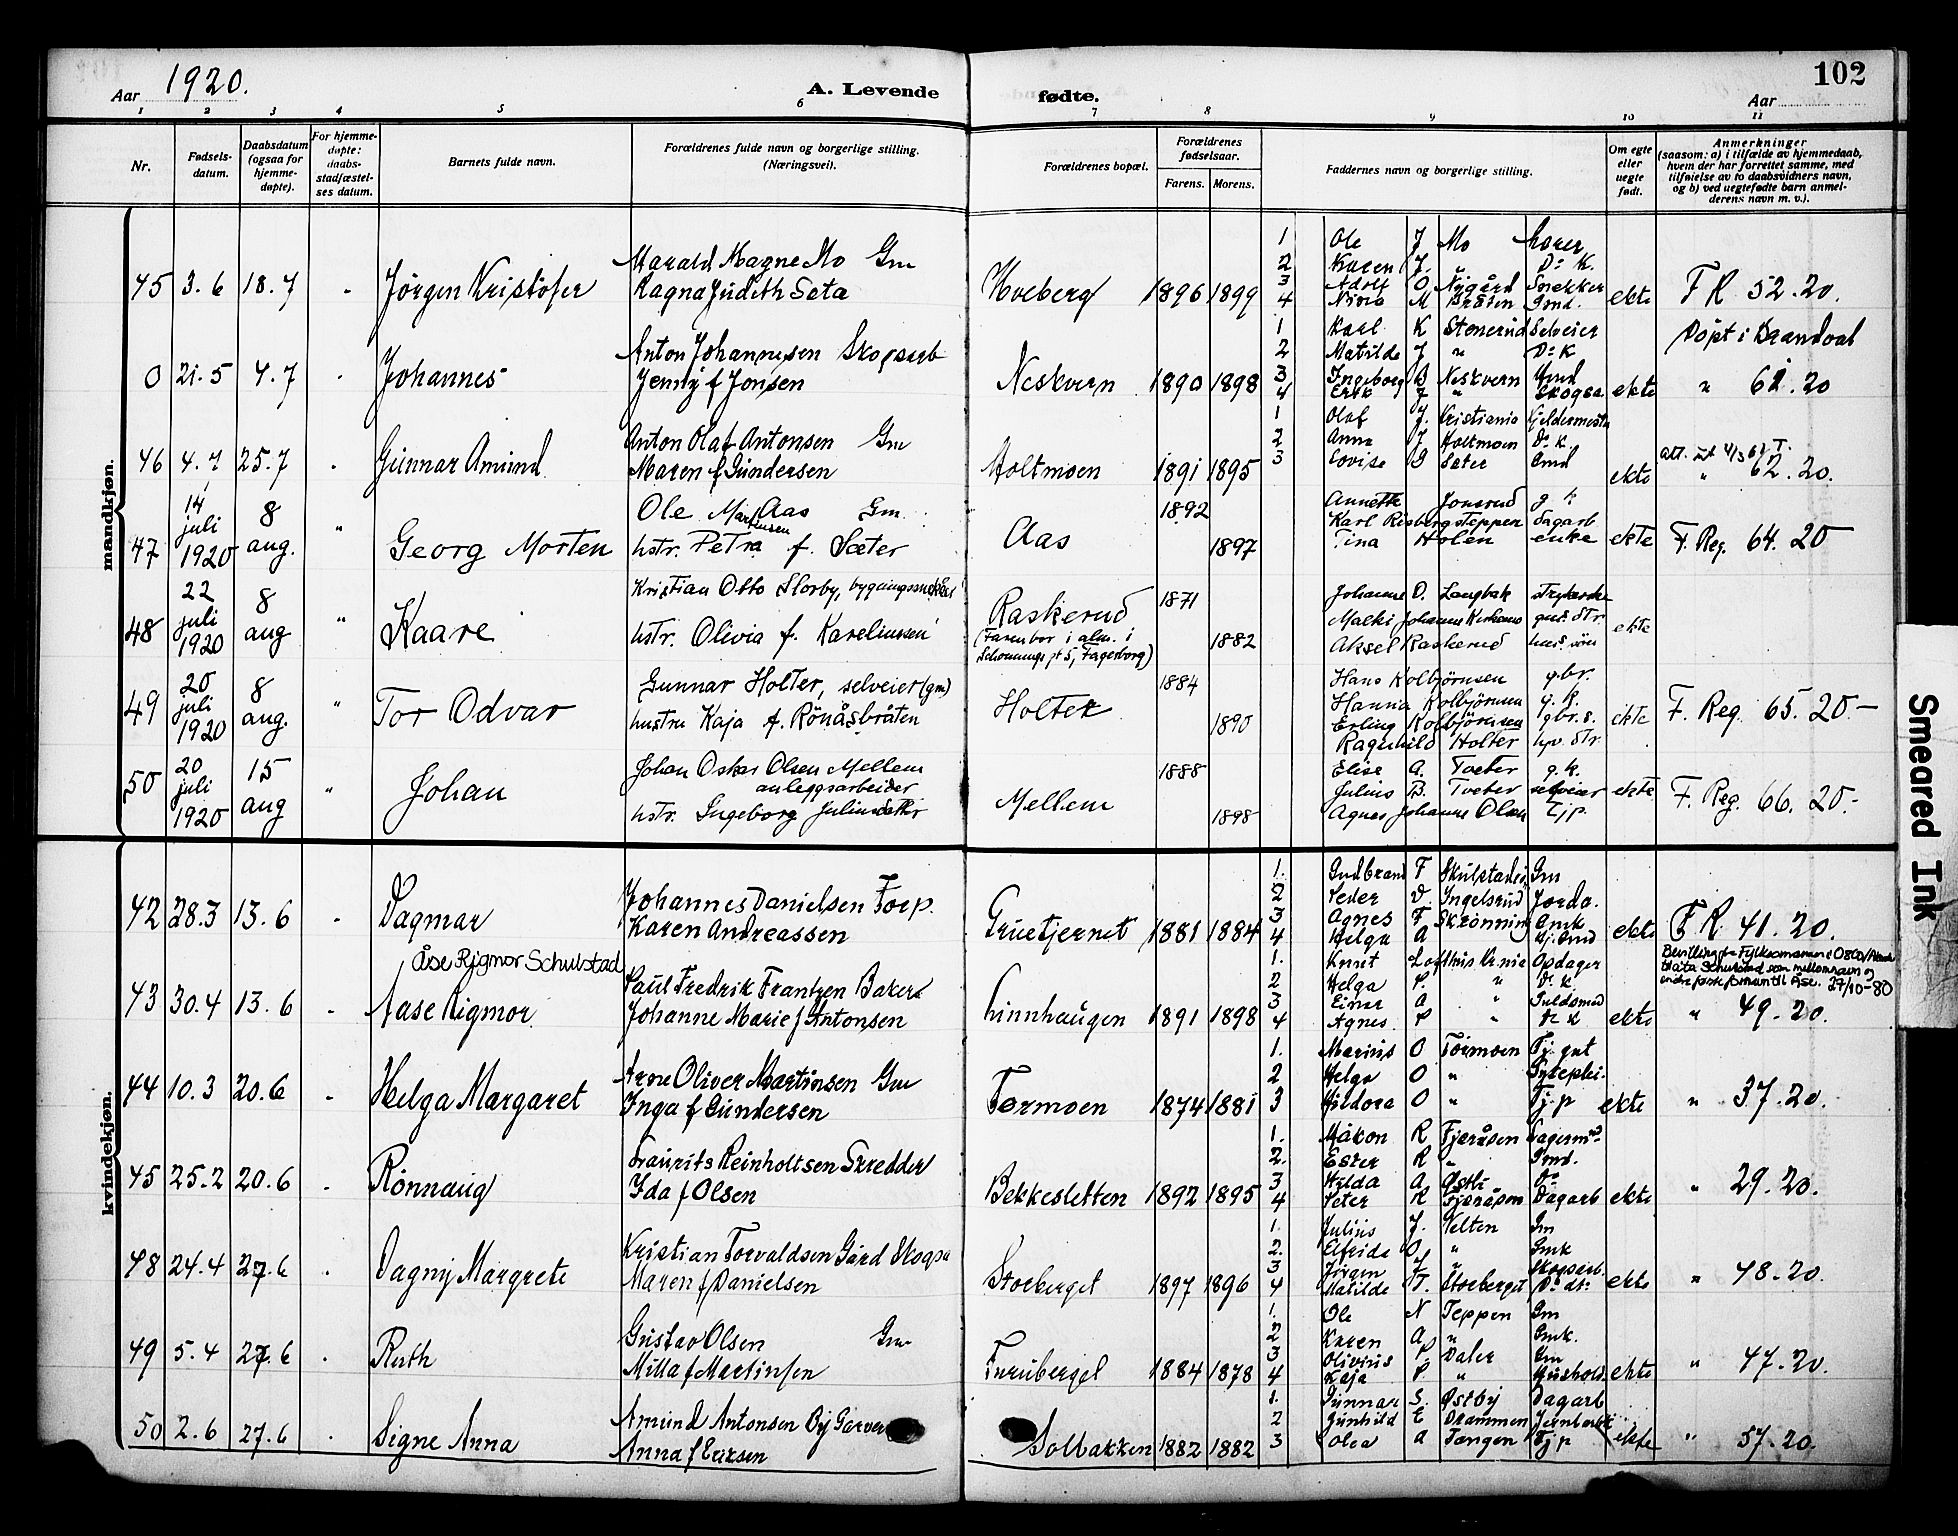 102
Aar 1920.
A. Levende
fødte.
Aar
1 2 3 4 5 6 7 8 9 10 11
Nr.
Fødsels-
datum.
Daabsdatum
(ogsaa for
hjemme-
døpte).
For hjemme-
døpte:
daabs-
stadfæstel-
ses datum.
Barnets fulde navn.
Forældrenes fulde navn og borgerlige stilling.
(Næringsvei).
Forældrenes bopæl.
Forældrenes
fødselsaar.
Farens. Morens.
Faddernes navn og borgerlige stilling.
Om egte
eller
uegte
født.
Anmerkninger
(saasom: a) i tilfælde av hjemmedaab,
hvem der har forrettet samme, med
tilføielse av to daabsvidners navn,
og b) ved uegtefødte barn anmel-
derens navn m. v.).
mandkjøn.
45 3.6 18.7 Jørgen Kristofer
Harald Magne Mo Gm
Ragna Judith Seta
Hveberg 1896 1899
1 Ole J Mo
2 Karen J. " Do K.
3 Adolf O Nygård Snekker
4 M Bråten Gmd.
ekte F R 52.20.
0 21.5 4.7 Johannes
Anton Johannesen Skogsarb
Jenny f Jonsen
Neskvern 1890 1898
1 Karl K Stenerud Selveier
2 Matilde J " Do K
3 Ingeborg B Neskvern Gmd
4 Erik J " Skogsa.
ekte
Döpt i Brandval
" 62.20
46 4.7 25.7 Gunnar Amund
Anton Olaf Antonsen Gm
Maren f Gundersen
Holtmoen 1891 1895
1 Olaf J. Kristiania
2 Anna J Holtmoen Do k
3 Lovise G Sæter Gmd
ekte " 62.20.
47 14 juli 1920 8 aug. " Georg Morten
Ole Martinsen Aas Gm.
hstr. Petra f. Sæter
Aas 1892 1897
Annette Jonsrud g. k
Karl Risberg steppen dagarb
Tina Holen enke
ekte F. Reg. 64. 20
48 22 juli 1920 8 aug " Kaare
Kristian Otto Storby,
hstr. Olivia f. Kareliussen
Raskerud
(Faren bor i alm. i
Schonnings gt 5, Fagerborg)
1871 1882
Johanne O. Langbak
Aksel Raskerud
ekte
49 20 juli 1920 8 aug. " Tor Odvar
Gunnar Holter, selveier (gm)
hustru Kaja f. Rönåsbråten
Holter 1884 1890
Hans Kolbjörnsen gbr.
Hanna Kolbjörnsen g. k.
Erling Kolbjörnsen gbr. s.
Ragnhild Holter hpv. dtr.
ekte F. Reg. 65. 20.-
50 20 juli 1920 15 aug " Johan
Johan Oskar Olsen Mellem
anleggsarbeider
hstr. Ingeborg
Mellem 1888 1898
Elise A. Tveter g. k.
Julius B. Tveter selveier
Agnes Johanne Olsen Tjp.
ekte F. Reg. 66. 20.-
kvindekjøn.
42 28.3 13.6 Dagmar
Johannes Danielsen Torp.
Karen Andreassen
Gruetjernet 1881 1884
1. Gudbrand F Skulstad Gm
2 Peder D. Ingelsrud Jorda.
3 Agnes F Skrønning Gmk
4 Helga A Tj. Gmd
ekte F R 41.20.
Åse Rigmor Schulstad
43 30.4 13.6 Aase Rigmor
Paul Fredrik Frantzen Baker
Johanne Marie f Antonsen
Linnhaugen 1891 1898
1. Knut Lofthus Opdager
2 Helga P. " Do K.
3 Einar A " Guldsmed
4 Agnes P " Do K
ekte
Bevilling fra Fylkesmannen i Oslo/Akersh
til å ta Schulstad som mellomnavn og
endre første fornavn til Åse. 27/10-80
" 49.20.
44 10.3 20.6 Helga Margaret
Arne Oliver Martinsen Gm
Inga f Gundersen
Tormoen 1874 1881
1. Marius O Tormoen Tj. gut
2 Helga O "
3 Hildora O " Tj. p
ekte " 37.20.
45 25.2 20.6 Rönnaug
Laurits Reinholtsen Skredder
Ida f Olsen
Bekkesletten 1892 1895
1. Håkon R Fjeråsen
2. Ester R " Gmd.
3 Hilda A Østli Do
4 Peter R Fjeråsen Dagarb
ekte " 29.20.
48 24.4 27.6 Dagny Margrete
Kristian Torvaldsen Gård Skogsa
Maren f Danielsen
Storberget 1897 1896
1. Julius J. Velten Gm
2. Elfride O. " Gmk
3 Jörgen " Skogsarb.
4 Matilde T. Storberget Do dt.
ekte " 48.20.
49 5.4 27.6 Ruth
Gustav Olsen Gm
Milla f Martinsen
Furuberget 1884 1878
1. Ole N Teppen Gm
2 Karen A " Gmk.
3 Olivius P. Daler Gm
4 Kaja P " Hushold.
ekte " 47.20.
50 2.6 27.6 Signe Anna
Amund Antonsen By Garver
Anna f Eriksen
Solbakken 1882 1882
1. Gunnar S. Østby Dagarb
2 Gunhild E Drammen
3 Olea A Tangen Tj p
ekte " 57.20.
Smeared Ink